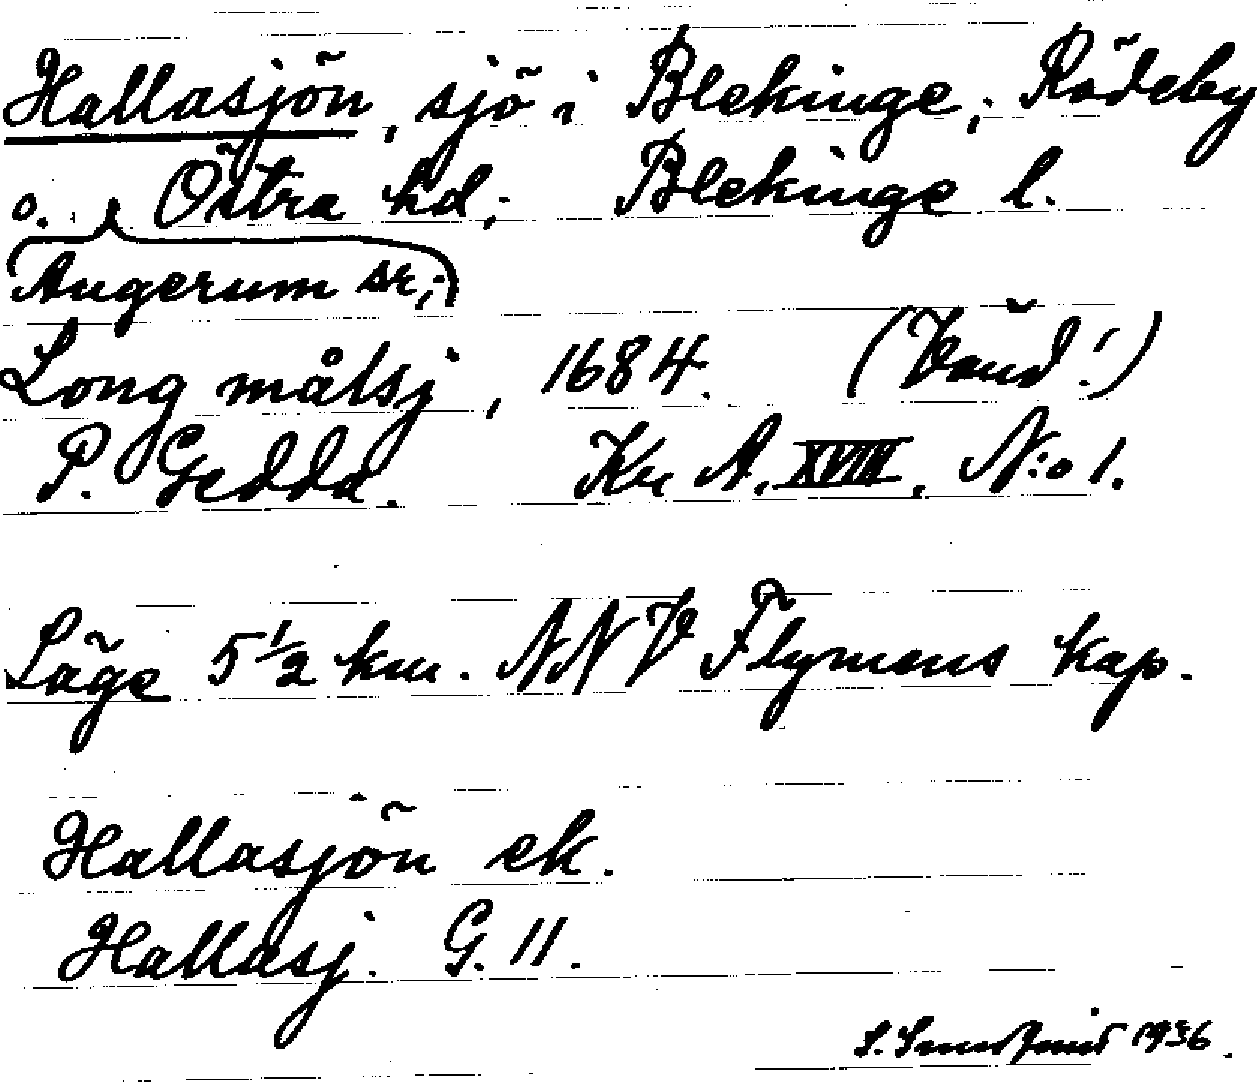 Hallasjön, sjö i Blekinge; Rödeby
o. Östra hd; Blekinge l.
Augerum sn;
Long målsj, 1684. (Vänd!)
P. Gedda. Kr A. XVIII, N:o 1.
Läge 5 1/2 km. NNV Flymens kap.
Hallasjön ek.
Hallasj. G. 11.
1936.